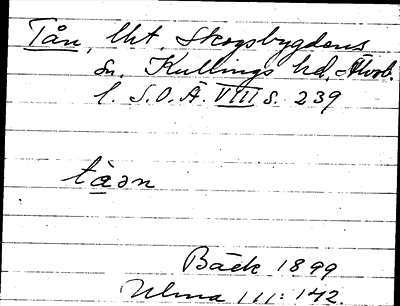 Tån, lht, Skogsbygdens
sn. Kullings hd, Älvsb.
l. S.O.Ä. VIII s. 239
tåən
Bäck 1899
Ulma 111:142.